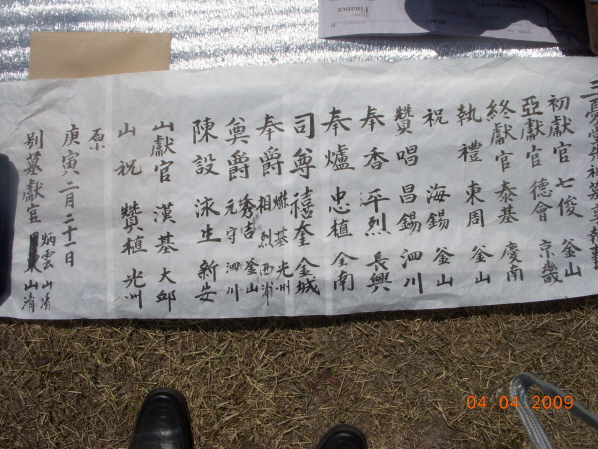 Finance
三憂堂
初獻官 七俊 釜山
亞獻官 德會 京畿
終獻官 泰基 慶南
執禮 東周 釜山
祝 海錫 釜山
贊唱 昌錫 泗川
奉香 平烈 長興
奉爐 忠植 全南
司尊 禧奎 金城
奉爵 基 光州
相烈 西浦
奠爵 秀吉 釜山
元守 泗川
陳設 泳生 新安
山獻官 漢基 大邱
山祝 贊植 光州
原
庚寅二月二十一日
別墓獻官 炳雲 山淸
東 山淸
04.04.2009